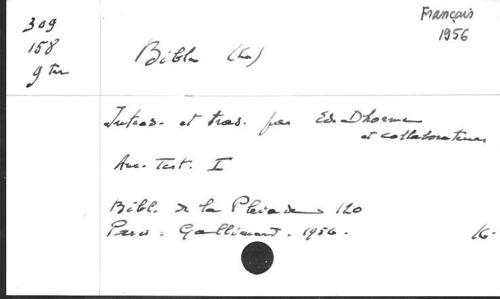 Français
1956
309
158
9 ter
Bible (La)
Introd. et trad. par Ed. Dhorme
et collaborateurs
Anc. Test. I
Bibl. de la Pleiade 120
Paris : Gallimard. 1956.
16.